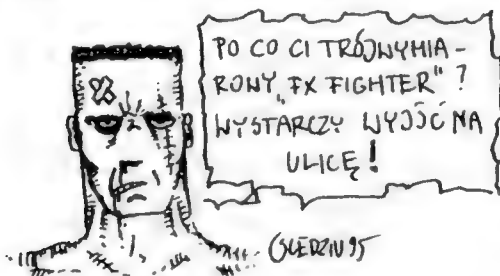 PO CO CI TRÓJWYMIA-
ROWY „FX FIGHTER" ?
WYSTARCZY WYJŚĆ NA
ULICĘ !
ŚLEDZIU 95